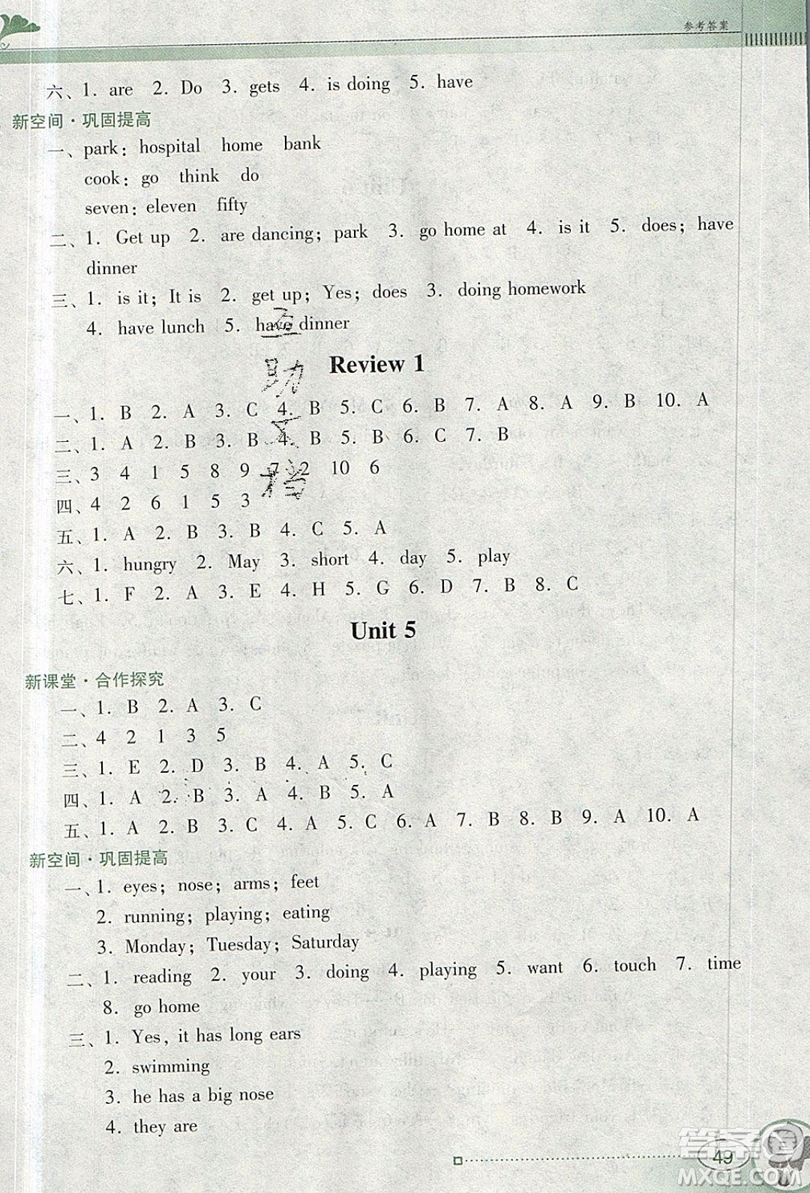 参考答案
六、1. are 2. Do 3. gets 4. is doing 5. have
新空间·巩固提高
一、park: hospital home bank
cook: go think do
seven: eleven fifty
二、1. Get up 2. are dancing; park 3. go home at 4. is it 5. does; have
dinner
三、1. is it; It is 2. get up; Yes; does 3. doing homework
4. have lunch 5. have dinner
Review 1
一、1. B 2. A 3. C 4. B 5. C 6. B 7. A 8. A 9. B 10. A
二、1. A 2. B 3. B 4. B 5. B 6. C 7. B
三、3 4 1 5 8 9 7 2 10 6
四、4 2 6 1 5 3
五、1. A 2. B 3. B 4. C 5. A
六、1. hungry 2. May 3. short 4. day 5. play
七、1. F 2. A 3. E 4. H 5. G 6. D 7. B 8. C
Unit 5
新课堂·合作探究
一、1. B 2. A 3. C
二、4 2 1 3 5
三、1. E 2. D 3. B 4. A 5. C
四、1. A 2. B 3. A 4. B 5. A
五、1. A 2. B 3. B 4. C 5. C 6. A 7. B 8. B 9. A 10. A
新空间·巩固提高
一、1. eyes; nose; arms; feet
2. running; playing; eating
3. Monday; Tuesday; Saturday
二、1. reading 2. your 3. doing 4. playing 5. want 6. touch 7. time
8. go home
三、1. Yes, it has long ears
2. swimming
3. he has a big nose
4. they are
49